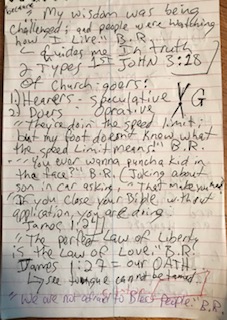 because
My wisdom was being
challenged; and people were watching
how I Like." B.R.
Guides me In truth
2 Types 1ST JOHN 3:18
Of Church-goers:
1) Hearers - speculative X G
2) Doers - Operative
"They're doin the speed limit;
but my foot doesn't know what
the speed limit means!" B.R.
"You ever wanna punch a kid in
the face?" B.R. (Joking about
son in car asking, "That make you mad
"If you close your Bible without
application, you are doing
James 1:24
"The perfect Law of Liberty
is the Law of Love." B.R.
James 1:27 = our OATH!
see tongue cannot be tamed
"We are not afraid to Bless people." B.R.